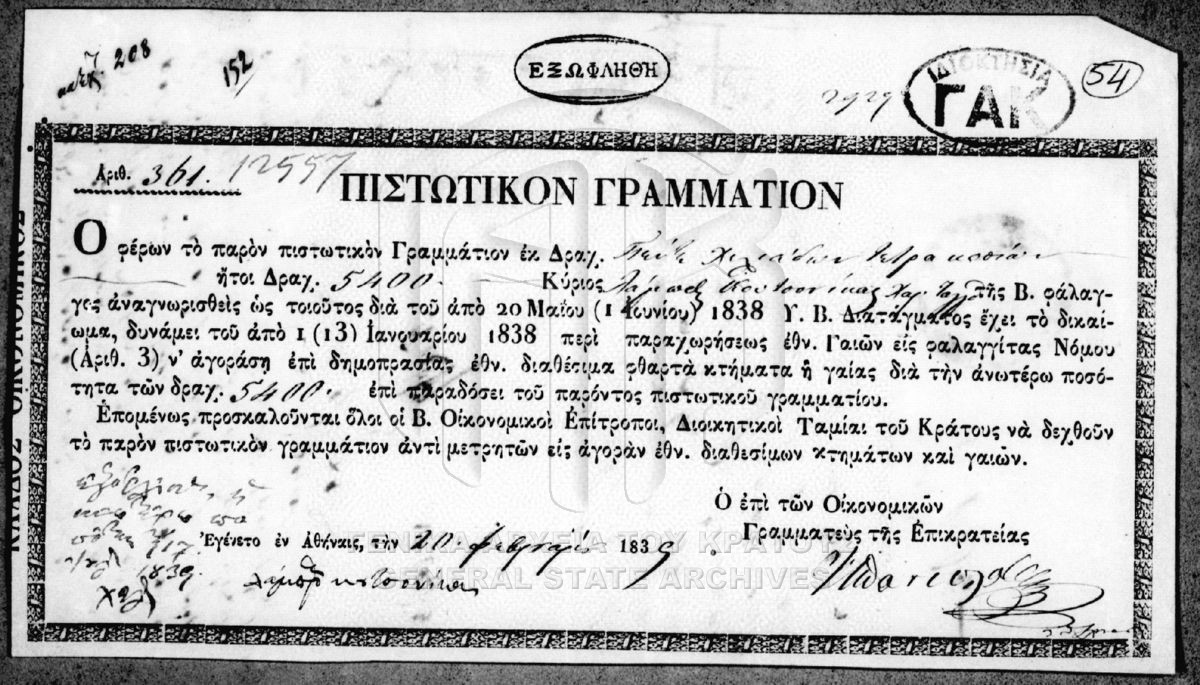 208
152
ΕΞΩΦΛΗΘΗ
2929
ΙΔΙΟΚΤΗΣΙΑ
ΓΑΚ
54
Αριθ. 361. 12557
ΠΙΣΤΩΤΙΚΟΝ ΓΡΑΜΜΑΤΙΟΝ
Ο φέρων τὸ παρὸν πιστωτικὸν Γραμμάτιον ἐκ Δραχ. Πέντε χιλιάδων τετρακοσίων
ἤτοι Δραχ. 5400. Κύριος Λάμπρος Κουτσονίκας τῆς Β. φάλαγ-
γες ἀναγνωρισθεὶς ὡς τοιοῦτος διὰ τοῦ ἀπὸ 20 Μαΐου (1 Ιουνίου) 1838 Υ. Β. Διατάγματος ἔχει τὸ δικαί-
ωμα, δυνάμει τοῦ ἀπὸ 1 (13) Ιανουαρίου 1838 περὶ παραχωρήσεως ἐθν. Γαιῶν εἰς φαλαγγίτας Νόμου
(Αριθ. 3) ν' ἀγοράση ἐπὶ δημοπρασίας ἐθν. διαθέσιμα φθαρτὰ κτήματα ἢ γαίας διὰ τὴν ἀνωτέρω ποσό-
τητα τῶν δραχ. 5400. ἐπὶ παραδόσει τοῦ παρόντος πιστωτικοῦ γραμματίου.
Ἐπομένως προσκαλοῦνται ὅλοι οἱ Β. Οἰκονομικοὶ Ἐπίτροποι, Διοικητικοὶ Ταμίαι τοῦ Κράτους νὰ δεχθοῦν
τὸ παρὸν πιστωτικὸν γραμμάτιον ἀντὶ μετρητῶν εἰς ἀγορὰν ἐθν. διαθεσίμων κτημάτων καὶ γαιῶν.
Ὁ ἐπὶ τῶν Οἰκονομικῶν
Γραμματεὺς τῆς Ἐπικρατείας
Ἐγένετο ἐν Ἀθήναις, τὴν 20 Φεβρουαρίου 1839
1839
Λάμπρος Κουτσονίκας
ΚΛΑΔΟΣ ΟΙΚΟΝΟΜΙΚΟΣ
ΓΕΝΙΚΑ ΑΡΧΕΙΑ ΤΟΥ ΚΡΑΤΟΥΣ
GENERAL STATE ARCHIVES